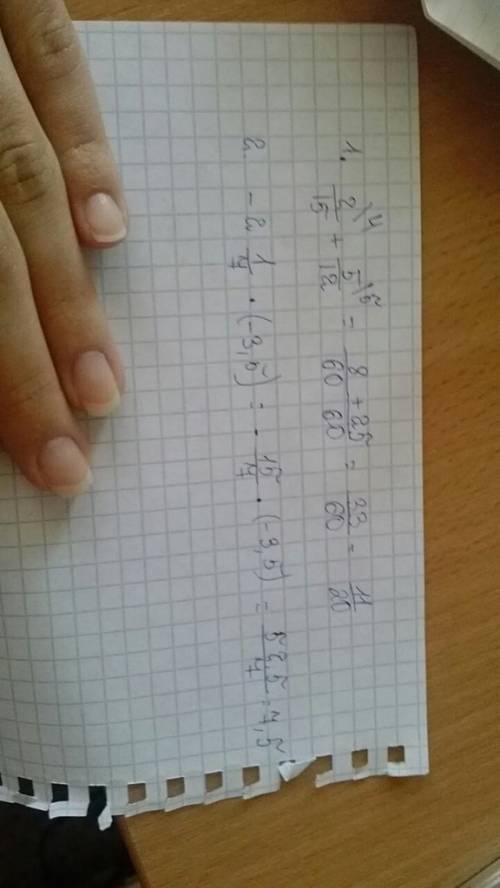 1. 2/15 \4 + 5/12 \5 = 8/60 + 25/60 = 33/60 = 11/20
2. - 2 1/7 · (-3,5) = - 15/7 · (-3,5) = 52,5/7 = 7,5